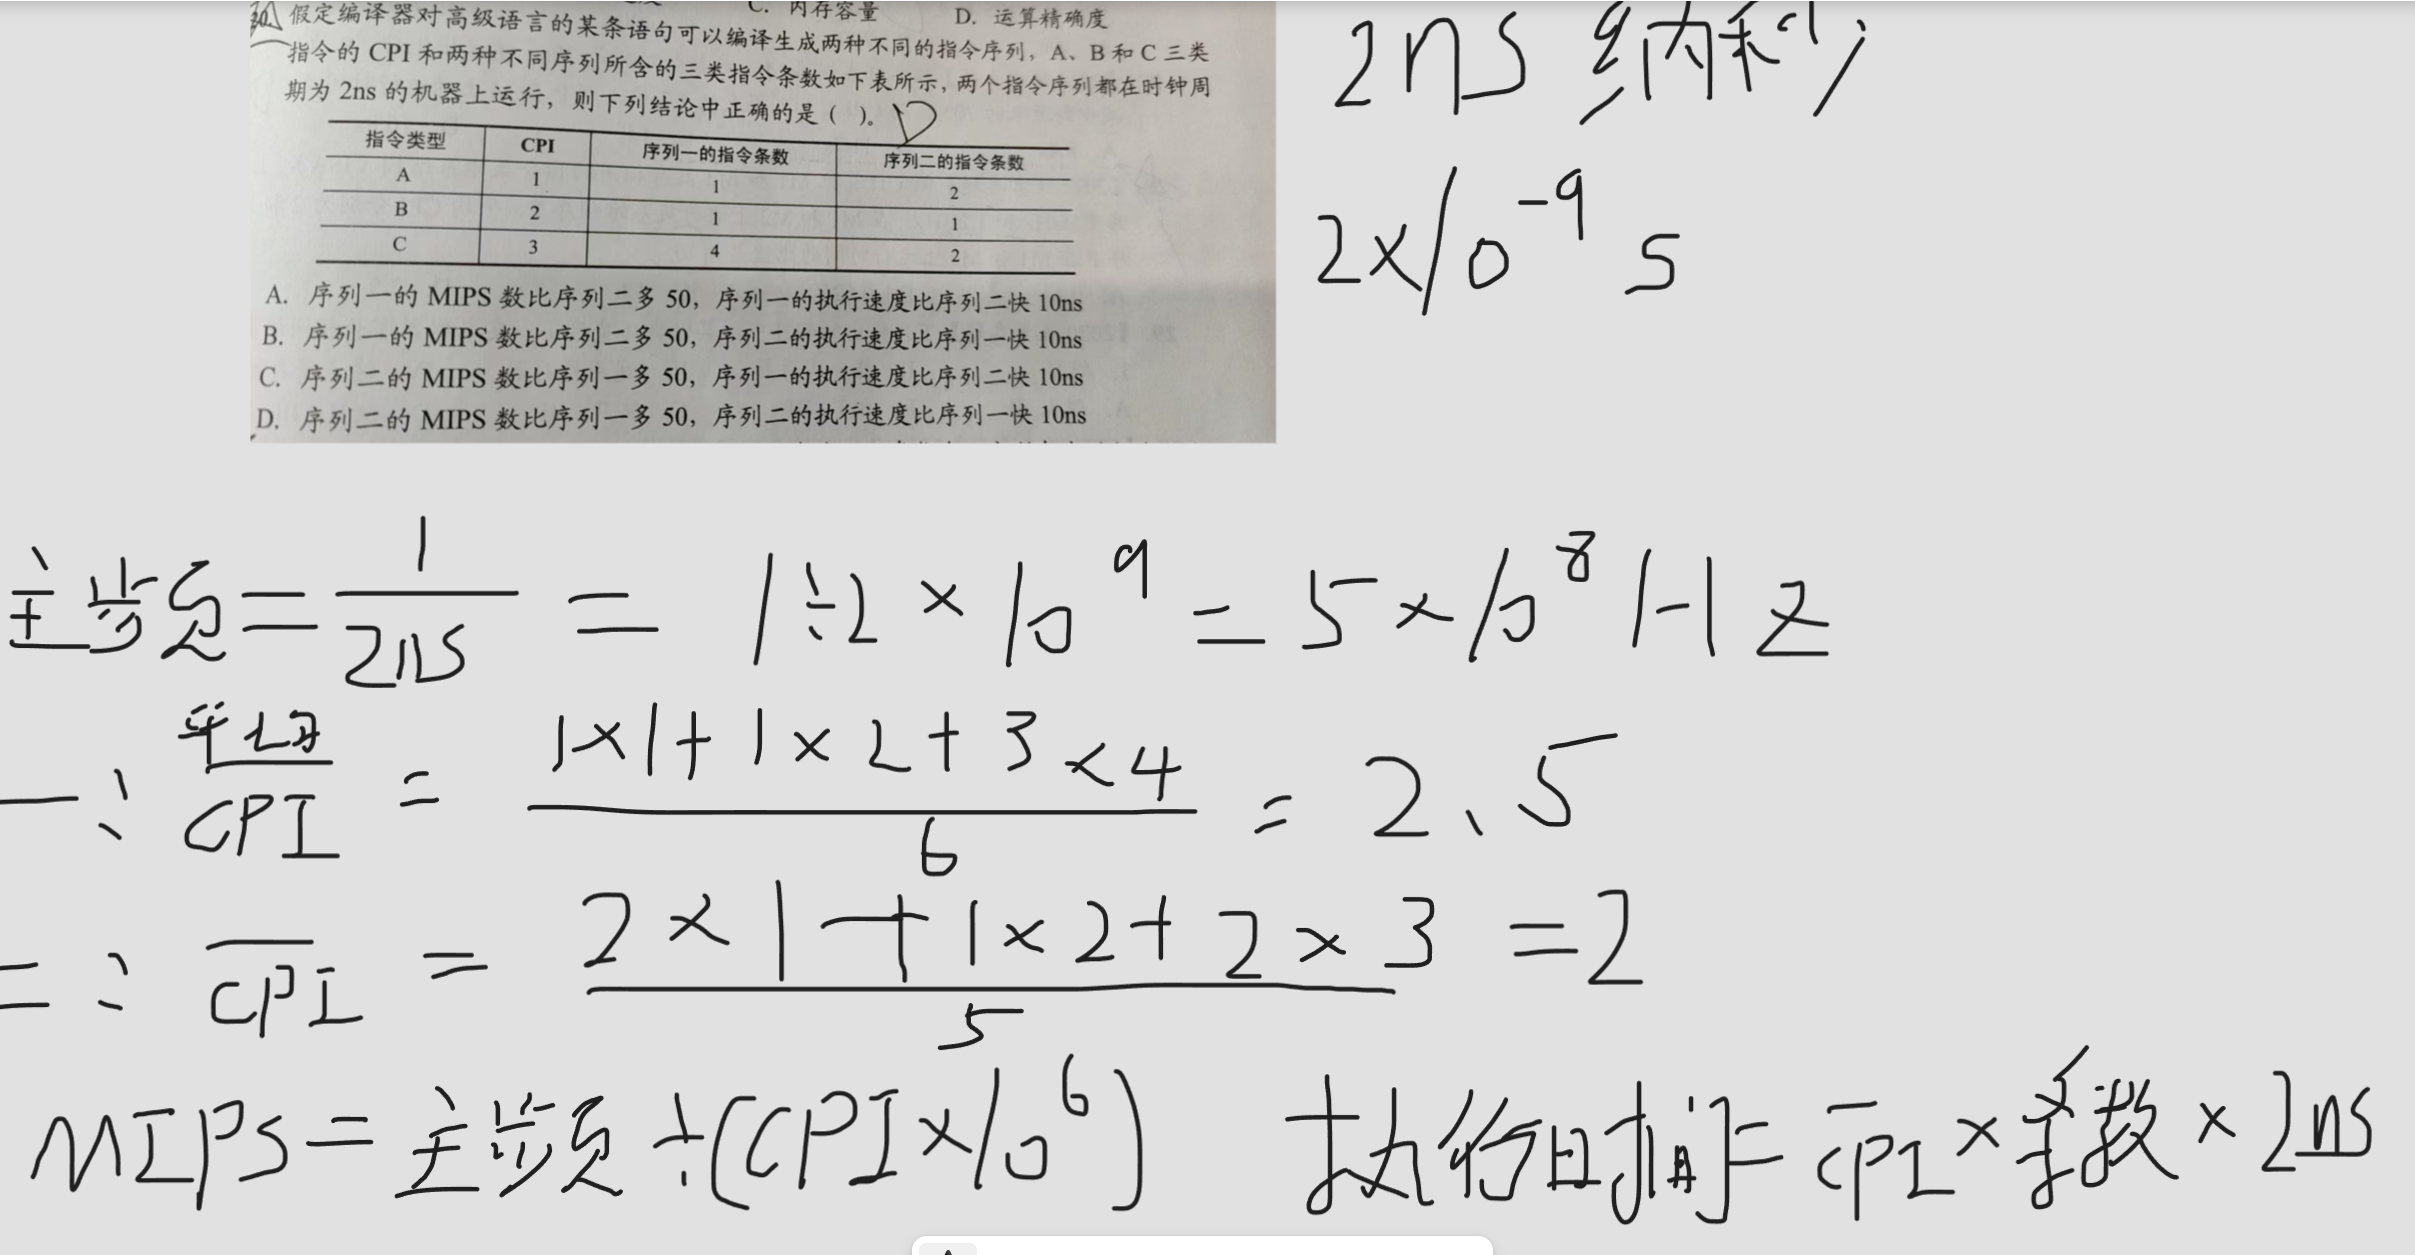 C. 内存容量 D. 运算精确度
30. 假定编译器对高级语言的某条语句可以编译生成两种不同的指令序列，A、B 和 C 三类
指令的 CPI 和两种不同序列所含的三类指令条数如下表所示，两个指令序列都在时钟周
期为 2ns 的机器上运行，则下列结论中正确的是（ ）。 D
指令类型 CPI 序列一的指令条数 序列二的指令条数
A 1 1 2
B 2 1 1
C 3 4 2
A. 序列一的 MIPS 数比序列二多 50，序列一的执行速度比序列二快 10ns
B. 序列一的 MIPS 数比序列二多 50，序列二的执行速度比序列一快 10ns
C. 序列二的 MIPS 数比序列一多 50，序列一的执行速度比序列二快 10ns
D. 序列二的 MIPS 数比序列一多 50，序列二的执行速度比序列一快 10ns
2ns 纳秒
2×10^-9 s
主频 = 1/2ns = 1÷2×10^9 = 5×10^8 Hz
一: 平均CPI = (1×1+1×2+3×4)/6 = 2.5
二: CPI = (2×1+1×2+2×3)/5 = 2
MIPS = 主频÷(CPI×10^6) 执行时间 = CPI×条数×2ns